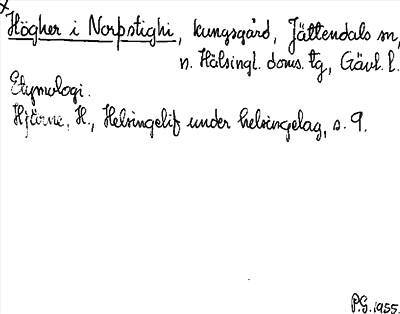 x
Högher i Norþstighi, kungsgård, Jättendals sn,
n. Hälsingl. doms. tg, Gävl. l.
Etymologi.
Hjörne, H., Helsingelif under helsingelag, s. 9.
P.G. 1955.